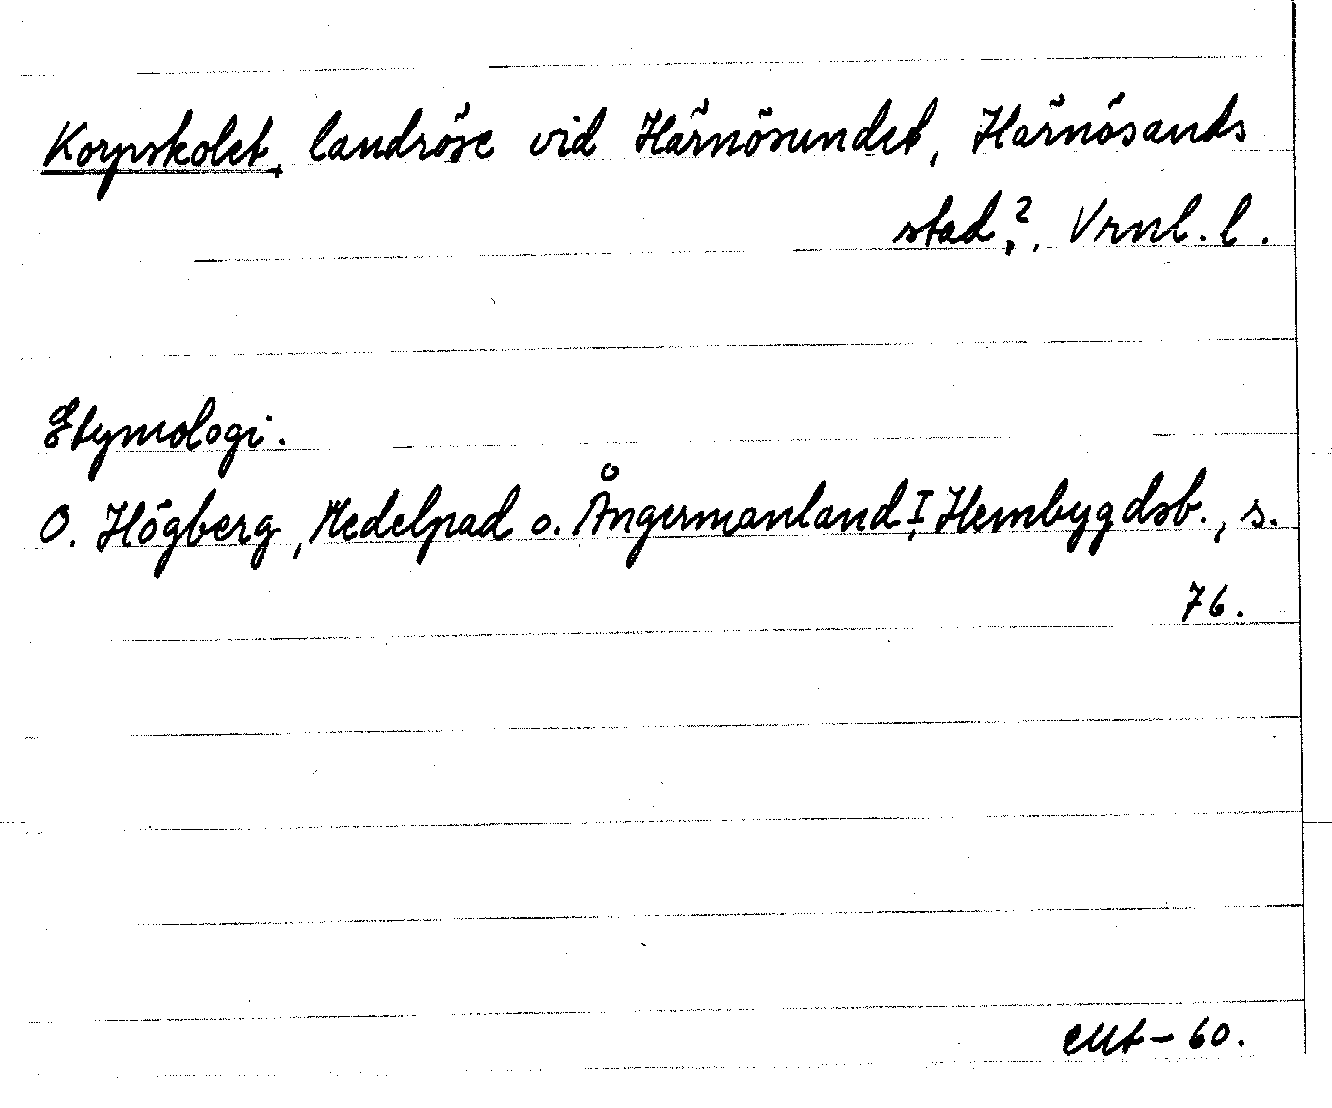 Korpskolet, landröse vid Härnösundet, Härnösands
stad,?. Vrnl. l.
Etymologi.
O. Högberg, Medelpad o. Ångermanland I, Hembygdsb., s.
76.
EUt - 60.